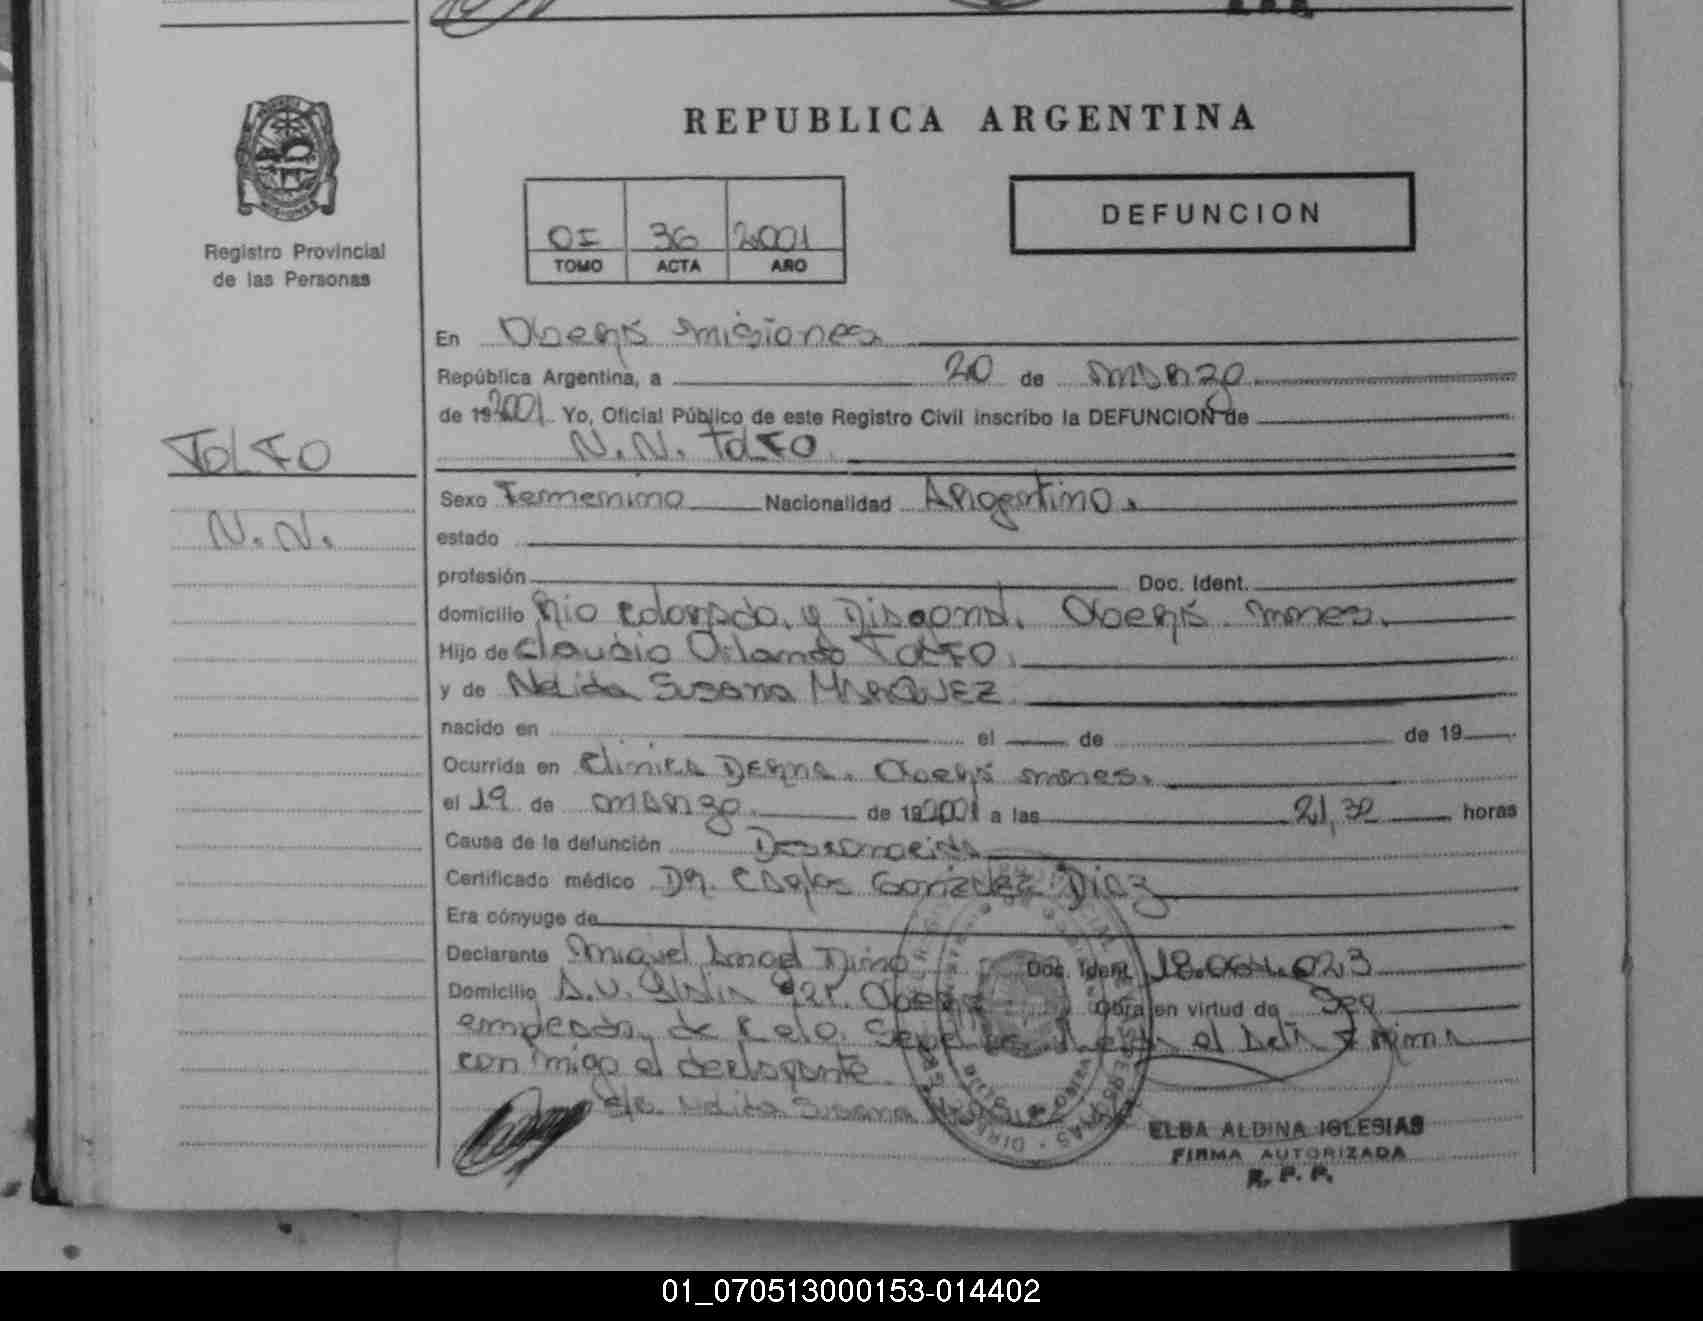 REPUBLICA ARGENTINA
DEFUNCION
Registro Provincial
de las Personas
OI 36 2001
TOMO ACTA AÑO
En Oberá Misiones
República Argentina, a 20 de marzo
de 192001 Yo, Oficial Público de este Registro Civil inscribo la DEFUNCION de
TOLFO
N.N. TOLFO
Sexo Femenino Nacionalidad Argentino.
N.N.
estado
profesión Doc. Ident.
domicilio Rio Colorado y Oberá Mnes.
Hijo de Claudio Orlando TOLFO.
y de Nelida Susana MARQUEZ
nacido en el de de 19
Ocurrida en Clinica Oberá mnes.
el 19 de marzo de 192001 a las 21,32 horas
Causa de la defunción
Certificado médico Dr. Carlos Gonzalez Diaz
Era cónyuge de
Declarante Miguel Angel Doc. Ident. 18.064.023
Domicilio A.V. Oberá Obra en virtud de Ser
empleado de el Acta Firma
con migo el declarante
Nelida Susana
ELBA ALDINA IGLESIAS
FIRMA AUTORIZADA
R. P. P.
01_070513000153-014402